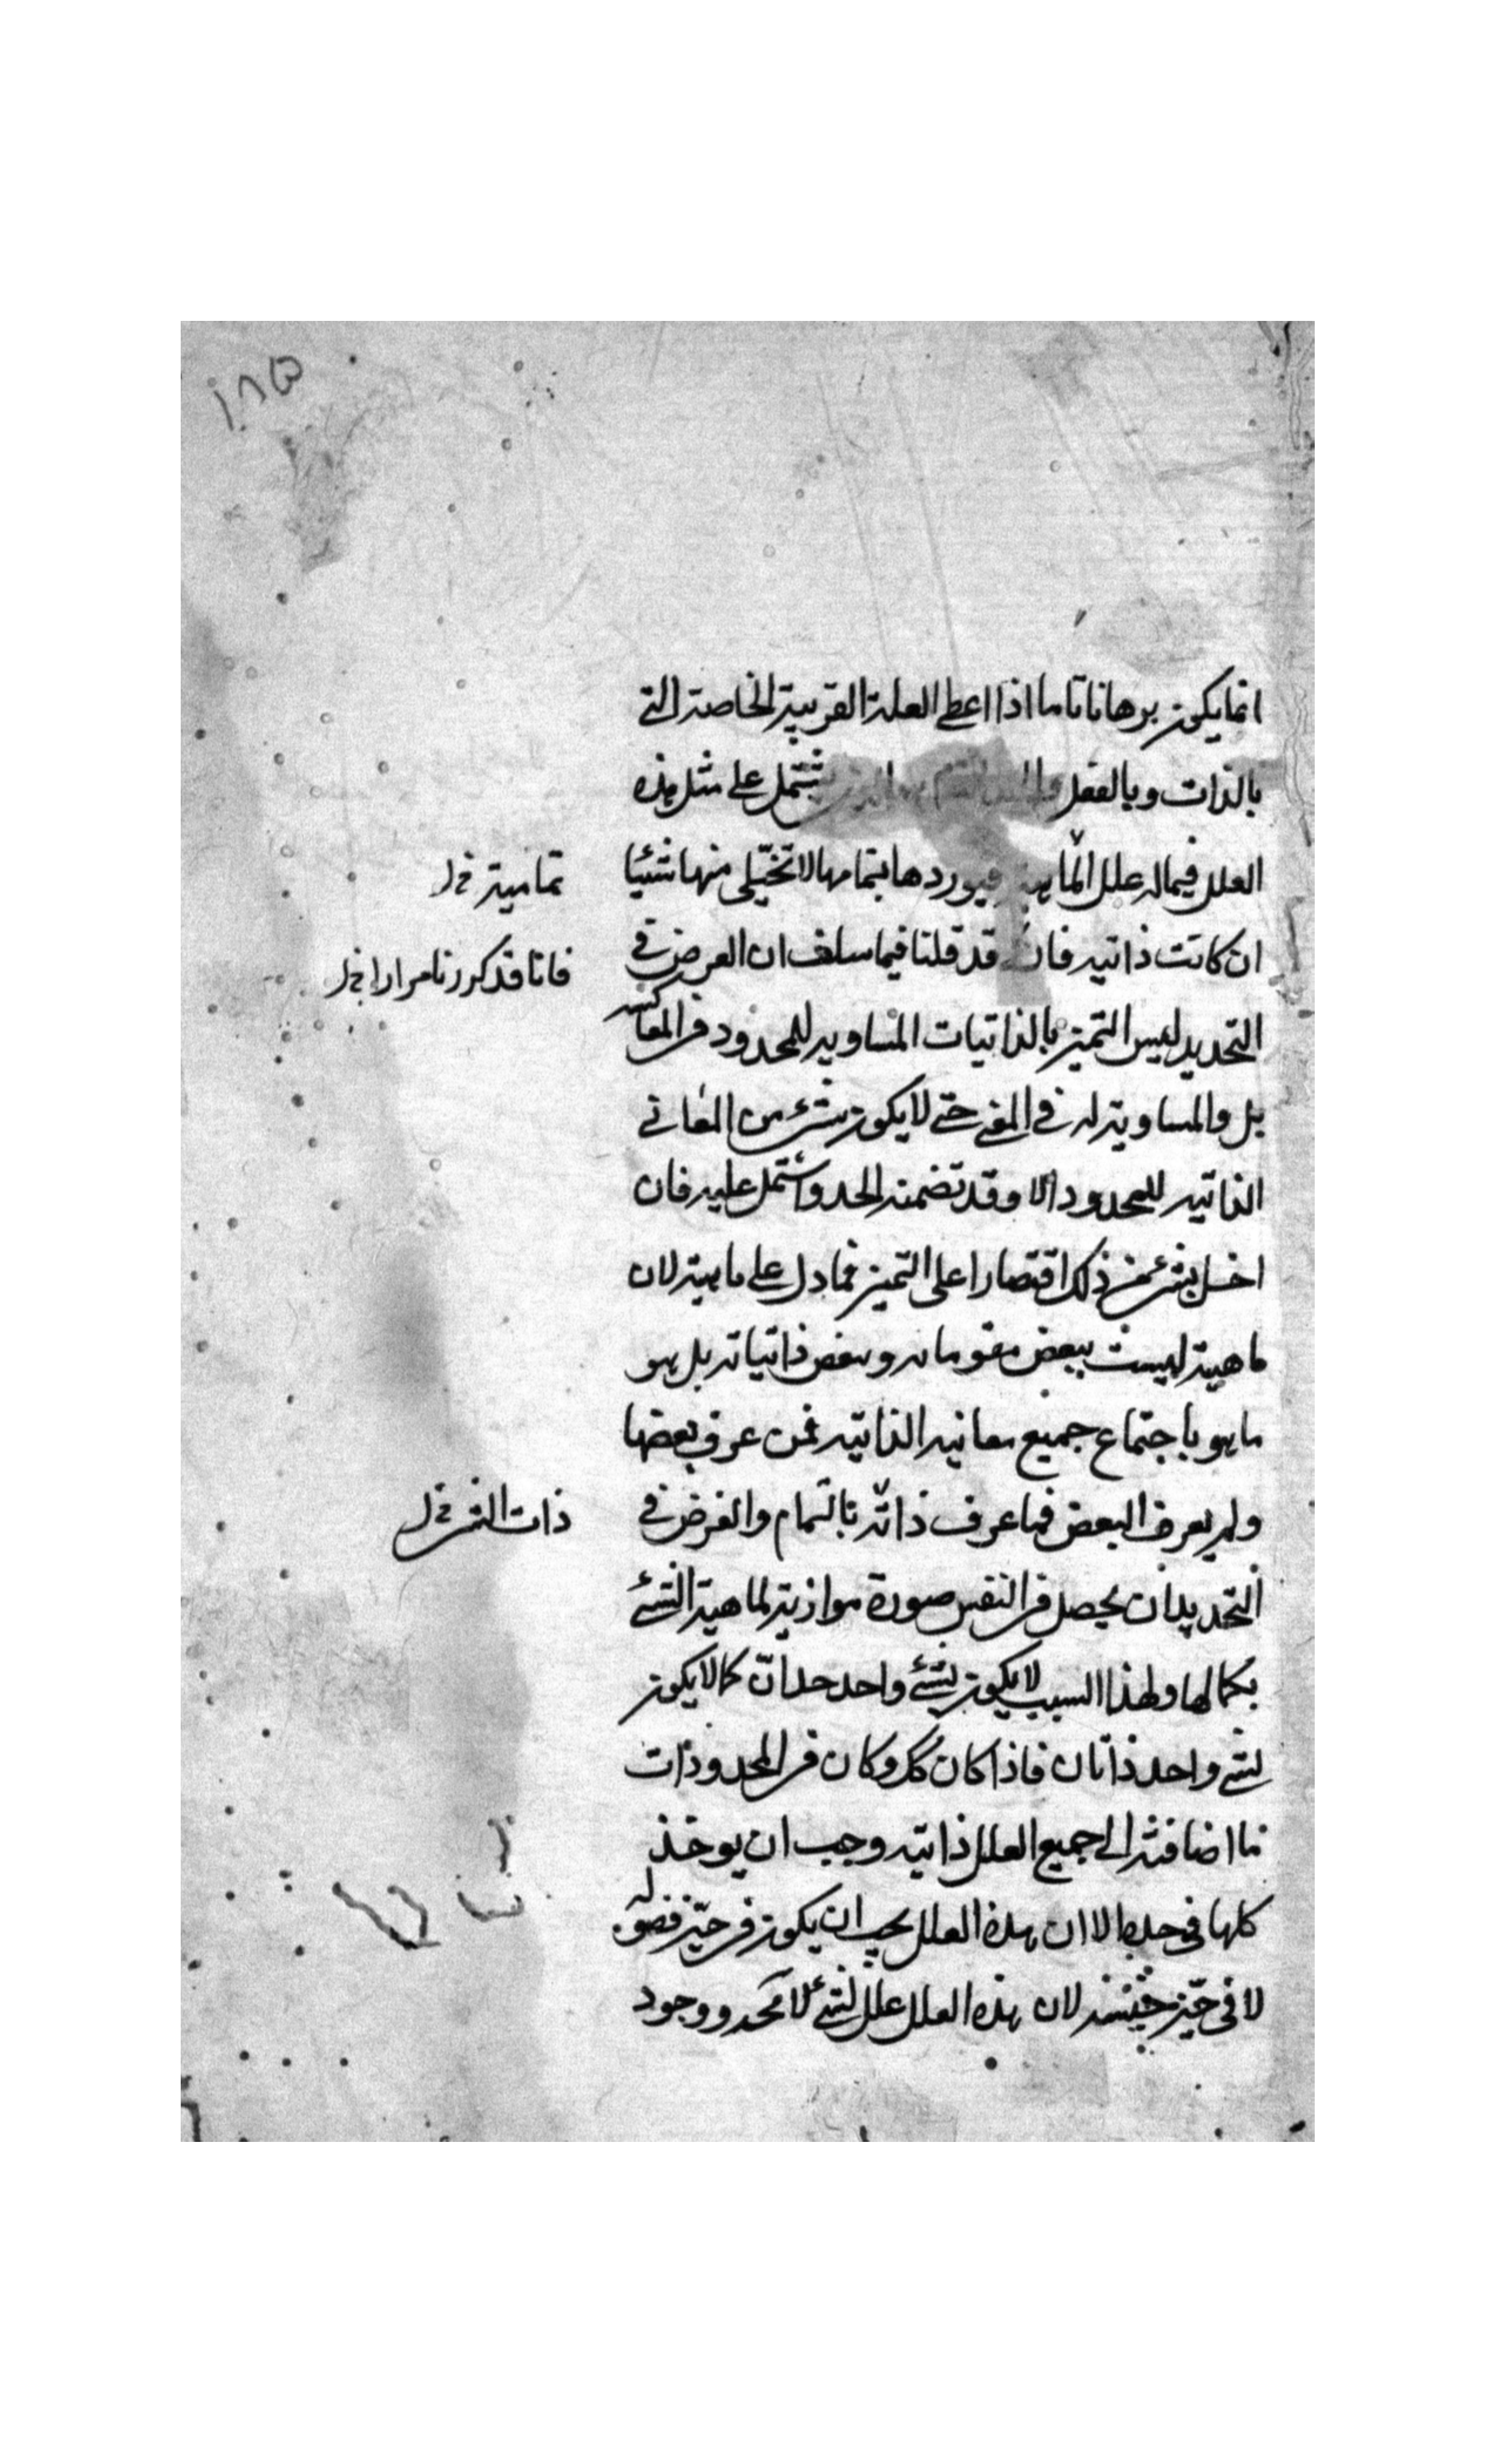 ١٨٥
انما يكون برهانا تاما اذا اعطى العلة القريبة الخاصة التى
بالذات وبالفعل يشتمل على مثل هذه
العلل فيما له علل الماهية فيوردها بتمامها لا تخلى منها شيئا
تمامية خ ل
ان كانت ذاتيه فان قد قلنا فيما سلف ان الغرض فى
فانا قد كررنا مرارا خ ل
التحديد ليس التميز بالذاتيات المساويه للمحدود فى المعاكسه
بل والمساوية له فى المعنى حتى لا يكون شئ من المعانى
الذاتيه للمحدود الا وقد تضمنه الحد واشتمل عليه فان
اخل بشئ من ذلك اقتصارا على التميز فما دل على ماهيته لان
ماهيته ليست ببعض مقوماته وبعض ذاتياته بل هو
ما هو باجتماع جميع معانيه الذاتيه فمن عرف بعضها
ولم يعرف البعض فما عرف ذاته بالتمام والغرض فى
ذات الشئ خ ل
التحديد ان يحصل فى النفس صورة موازية لماهية الشئ
بكمالها ولهذا السبب لا يكون لشئ واحد حدان كما لا يكون
لشئ واحد ذاتان فاذا كان كك وكان فى المحدودات
ما اضافته الى جميع العلل ذاتيه وجب ان يوخذ
كلها فى حده الا ان هذه العلل يجب ان يكون فى حيز فصوله
لا فى حيز جنسه لان هذه العلل علل لشئ لا محه ووجود